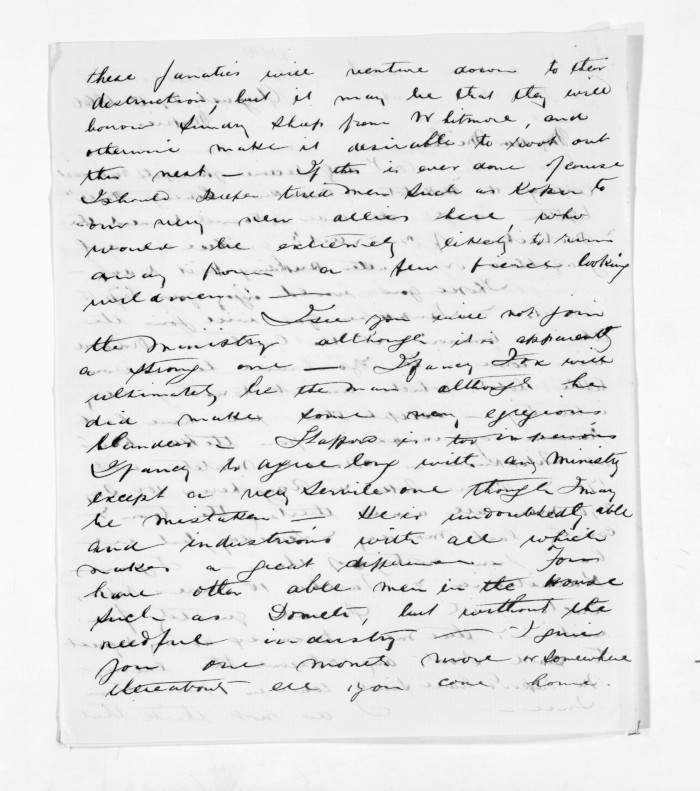 these fanatics will venture down to their
destruction, but it may be that they will
borrow Sunday sheep from Whitmore, and
otherwise make it desirable to root out
this nest — If this is ever done of course
I should prefer tried men such as Kopu to
our very new allies here, who
would be extremely likely to run
away from a few fierce looking
wildmen —
I see you will not join
the Ministry although it is apparently
a strong one — I fancy Fox will
ultimately be the man although he
did make some very egregious
blunders — Stafford is too imperious
I fancy to agree long with any Ministry
except a very servile one though I may
be mistaken — He is undoubtedly able
and industrious with all which
makes a great difference You
have other able men in the House
such as Domett, but without the
needful industry — I give
you one month more or somewhere
thereabouts ere you come home.